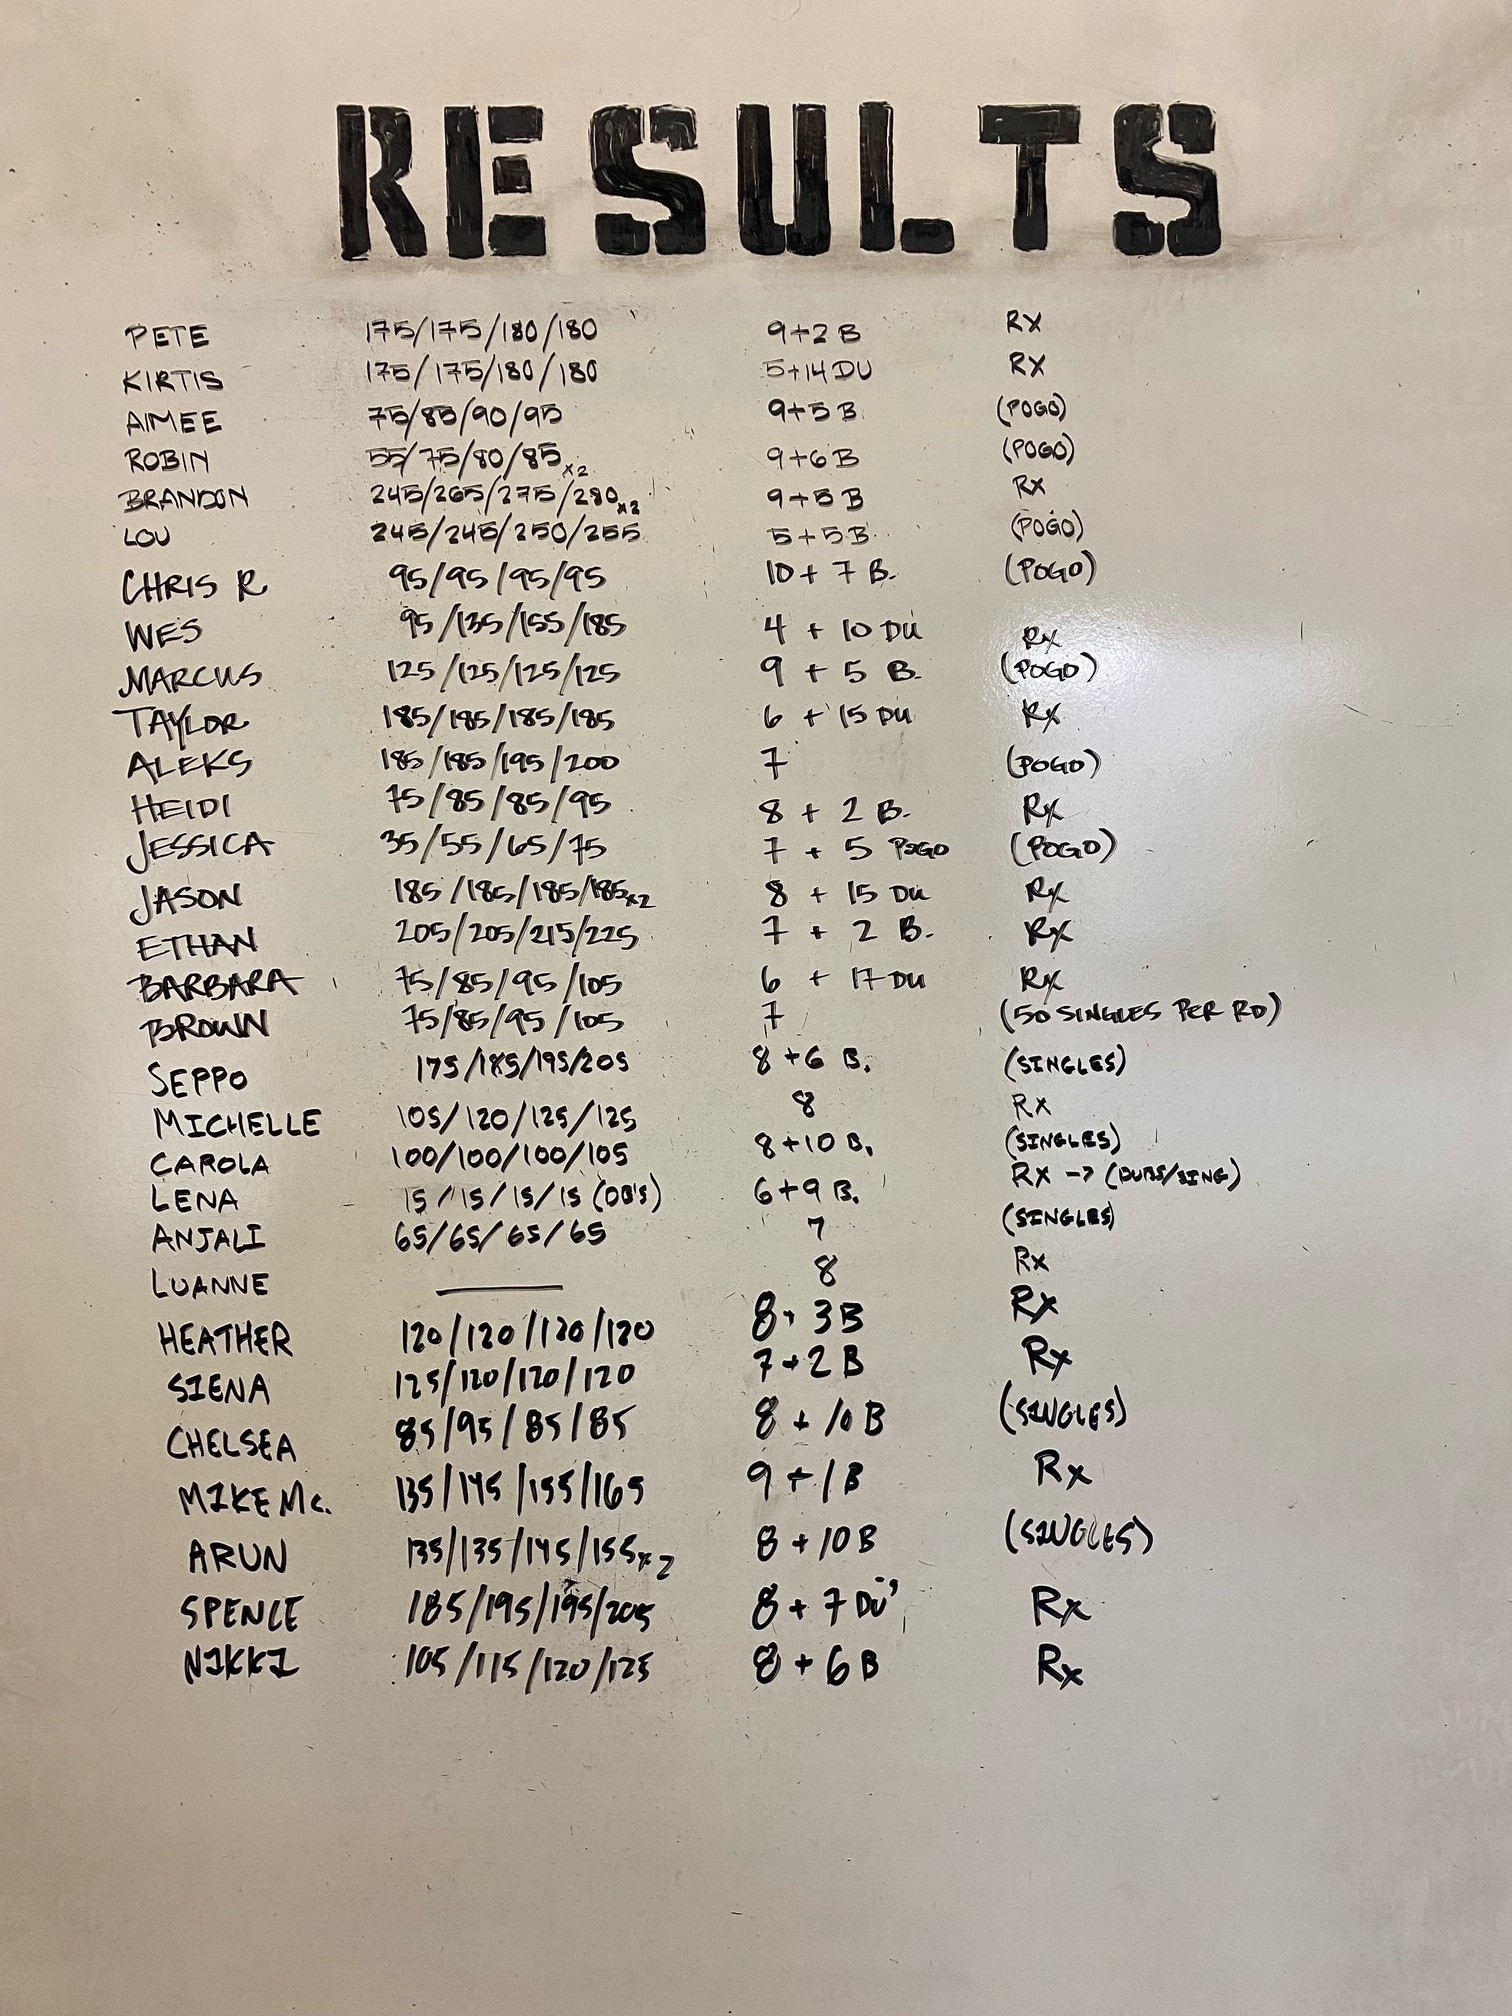 RESULTS
PETE 175/175/180/180 9+2 B RX
KIRTIS 175/175/180/180 5+14 DU RX
AIMEE 75/85/90/95 9+5 B (POGO)
ROBIN 55/75/80/85 x2 9+6 B (POGO)
BRANDON 245/265/275/280 x2 9+5 B RX
LOU 245/245/250/255 5+5 B (POGO)
CHRIS R 95/95/95/95 10 + 7 B. (POGO)
WES 95/135/155/185 4 + 10 DU Rx
MARCUS 125/125/125/125 9 + 5 B. (POGO)
TAYLOR 185/185/185/185 6 + 15 DU Rx
ALEKS 185/185/195/200 7 (POGO)
HEIDI 75/85/85/95 8 + 2 B. Rx
JESSICA 35/55/65/75 7 + 5 POGO (POGO)
JASON 185/185/185/185 x2 8 + 15 DU Rx
ETHAN 205/205/215/225 7 + 2 B. Rx
BARBARA 75/85/95/105 6 + 17 DU Rx
BROWN 75/85/95/105 7 (50 SINGLES PER RD)
SEPPO 175/185/195/205 8+6 B. (SINGLES)
MICHELLE 105/120/125/125 8 RX
CAROLA 100/100/100/105 8+10 B. (SINGLES)
LENA 15/15/15/15 (DB'S) 6+9 B. RX -> (DUBS/SING)
ANJALI 65/65/65/65 7 (SINGLES)
LUANNE — 8 Rx
HEATHER 120/120/120/120 8+3B Rx
SIENA 125/120/120/120 7+2 B Rx
CHELSEA 85/95/85/85 8 + 10 B (SINGLES)
MIKE Mc. 135/145/155/165 9 + 1 B Rx
ARUN 135/135/145/155 x2 8 + 10 B (SINGLES)
SPENCE 185/195/195/205 8 + 7 DU Rx
NIKKI 105/115/120/125 8 + 6 B Rx